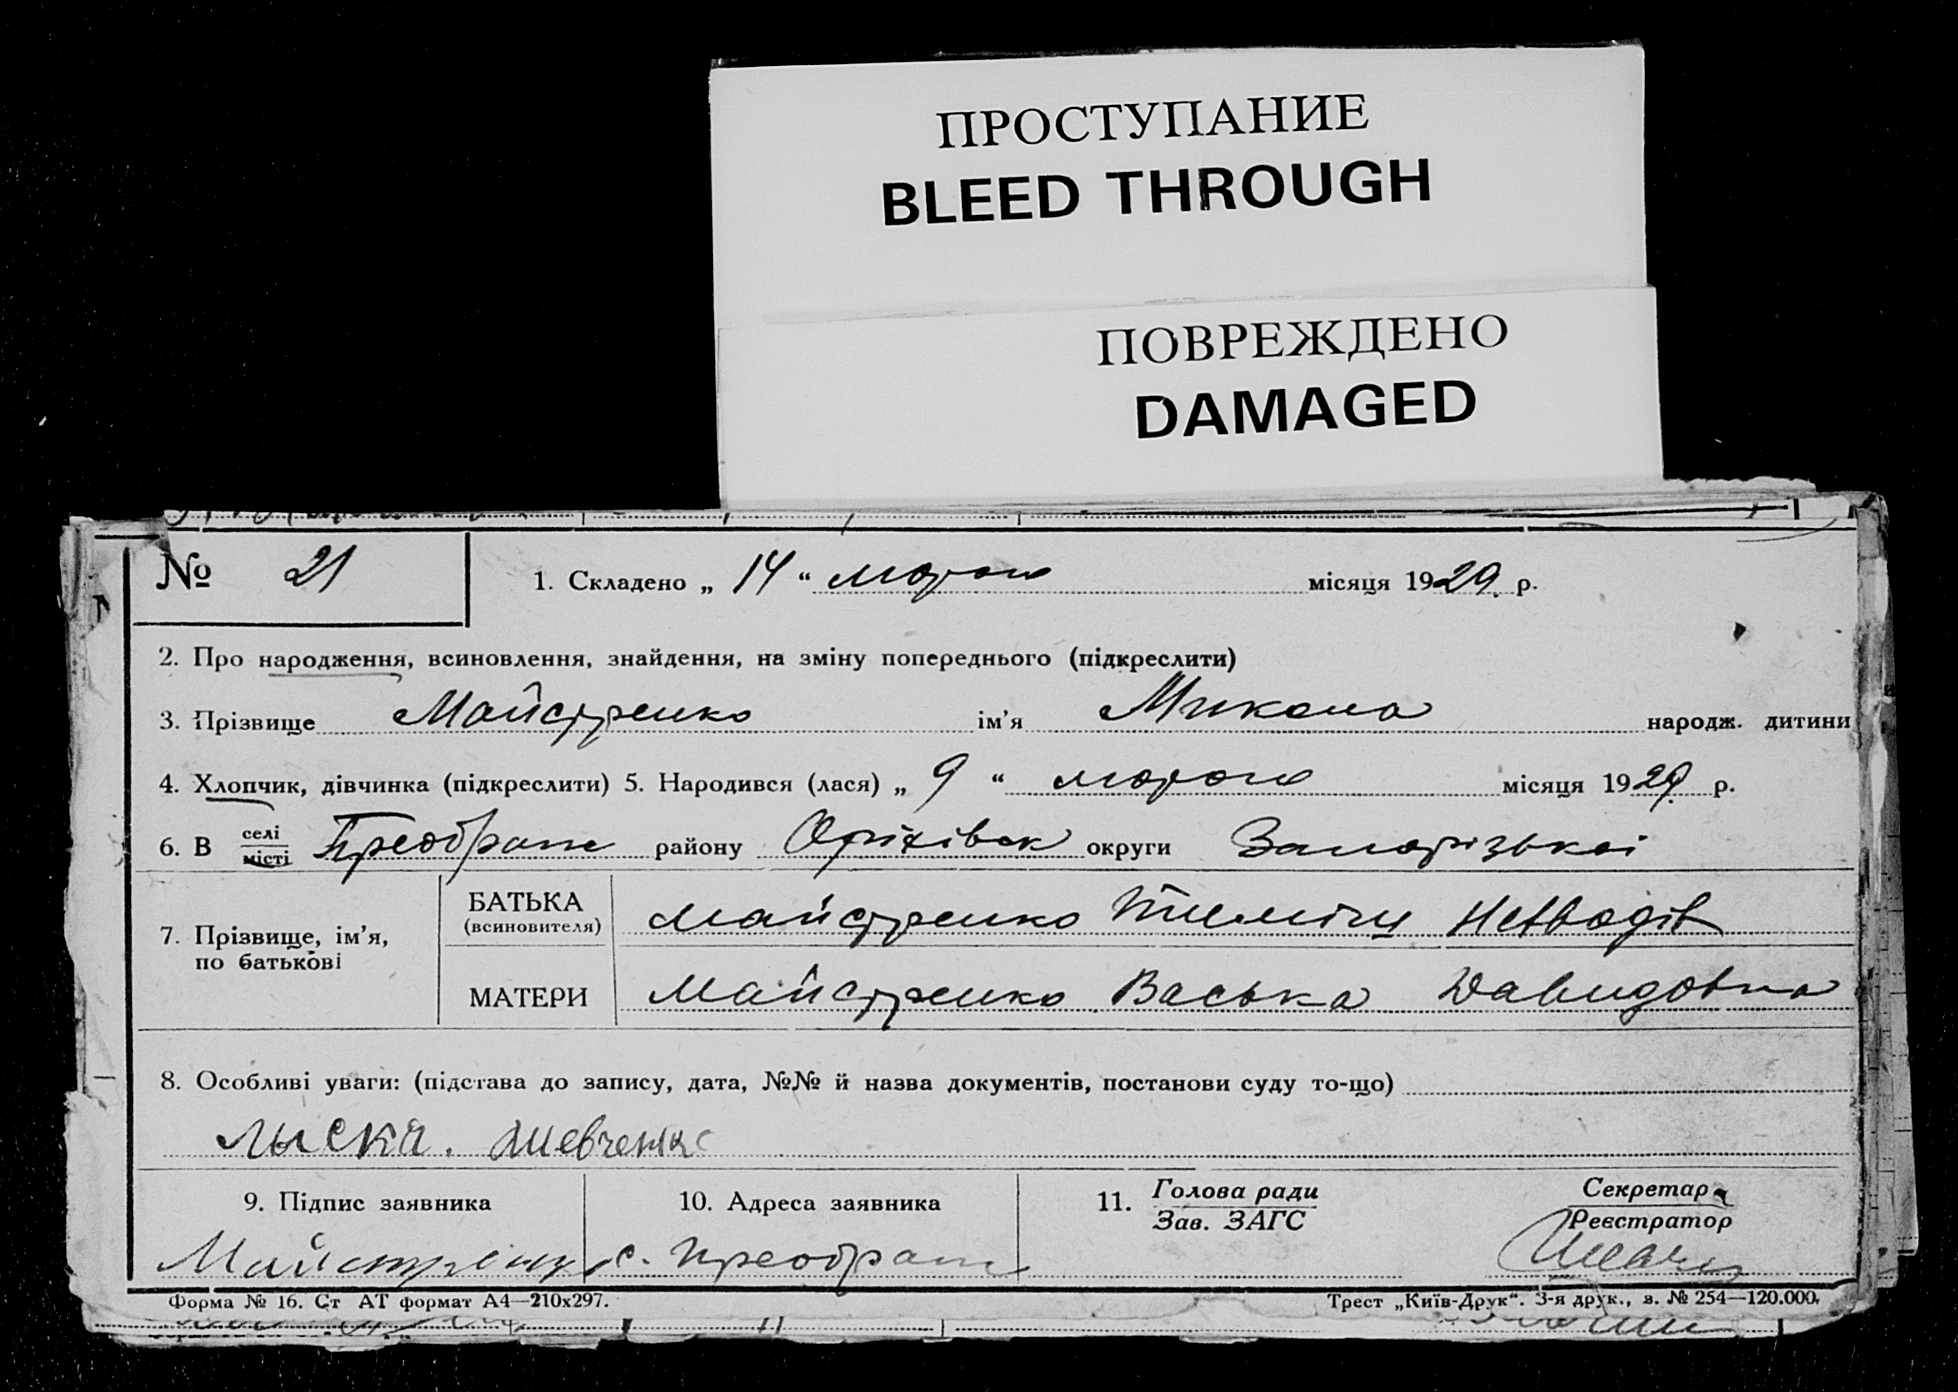 ПРОСТУПАНИЕ
BLEED THROUGH
ПОВРЕЖДЕНО
DAMAGED
№ 21
1. Складено „ 14 “ лютого місяця 1929 р.
2. Про народження, всиновлення, знайдення, на зміну попереднього (підкреслити)
3. Прізвище Майстренко ім’я Микола народж. дитини
4. Хлопчик, дівчинка (підкреслити) 5. Народився (лася) „ 9 “ лютого місяця 1929 р.
6. В селі місті Преображ району Оріхівськ округи Запорізької
7. Прізвище, ім’я, по батькові
БАТЬКА (всиновителя) Майстренко
МАТЕРИ Майстренко Васька Давидовна
8. Особливі уваги: (підстава до запису, дата, №№ й назва документів, постанови суду то-що)
Шевченко
9. Підпис заявника
10. Адреса заявника
11. Голова ради
Зав. ЗАГС
Секретар
Реєстратор
Майстренко с. Преображ
Форма № 16. Ст АТ формат А4—210х297.
Трест „Київ-Друк“. 3-я друк., з. № 254—120.000.